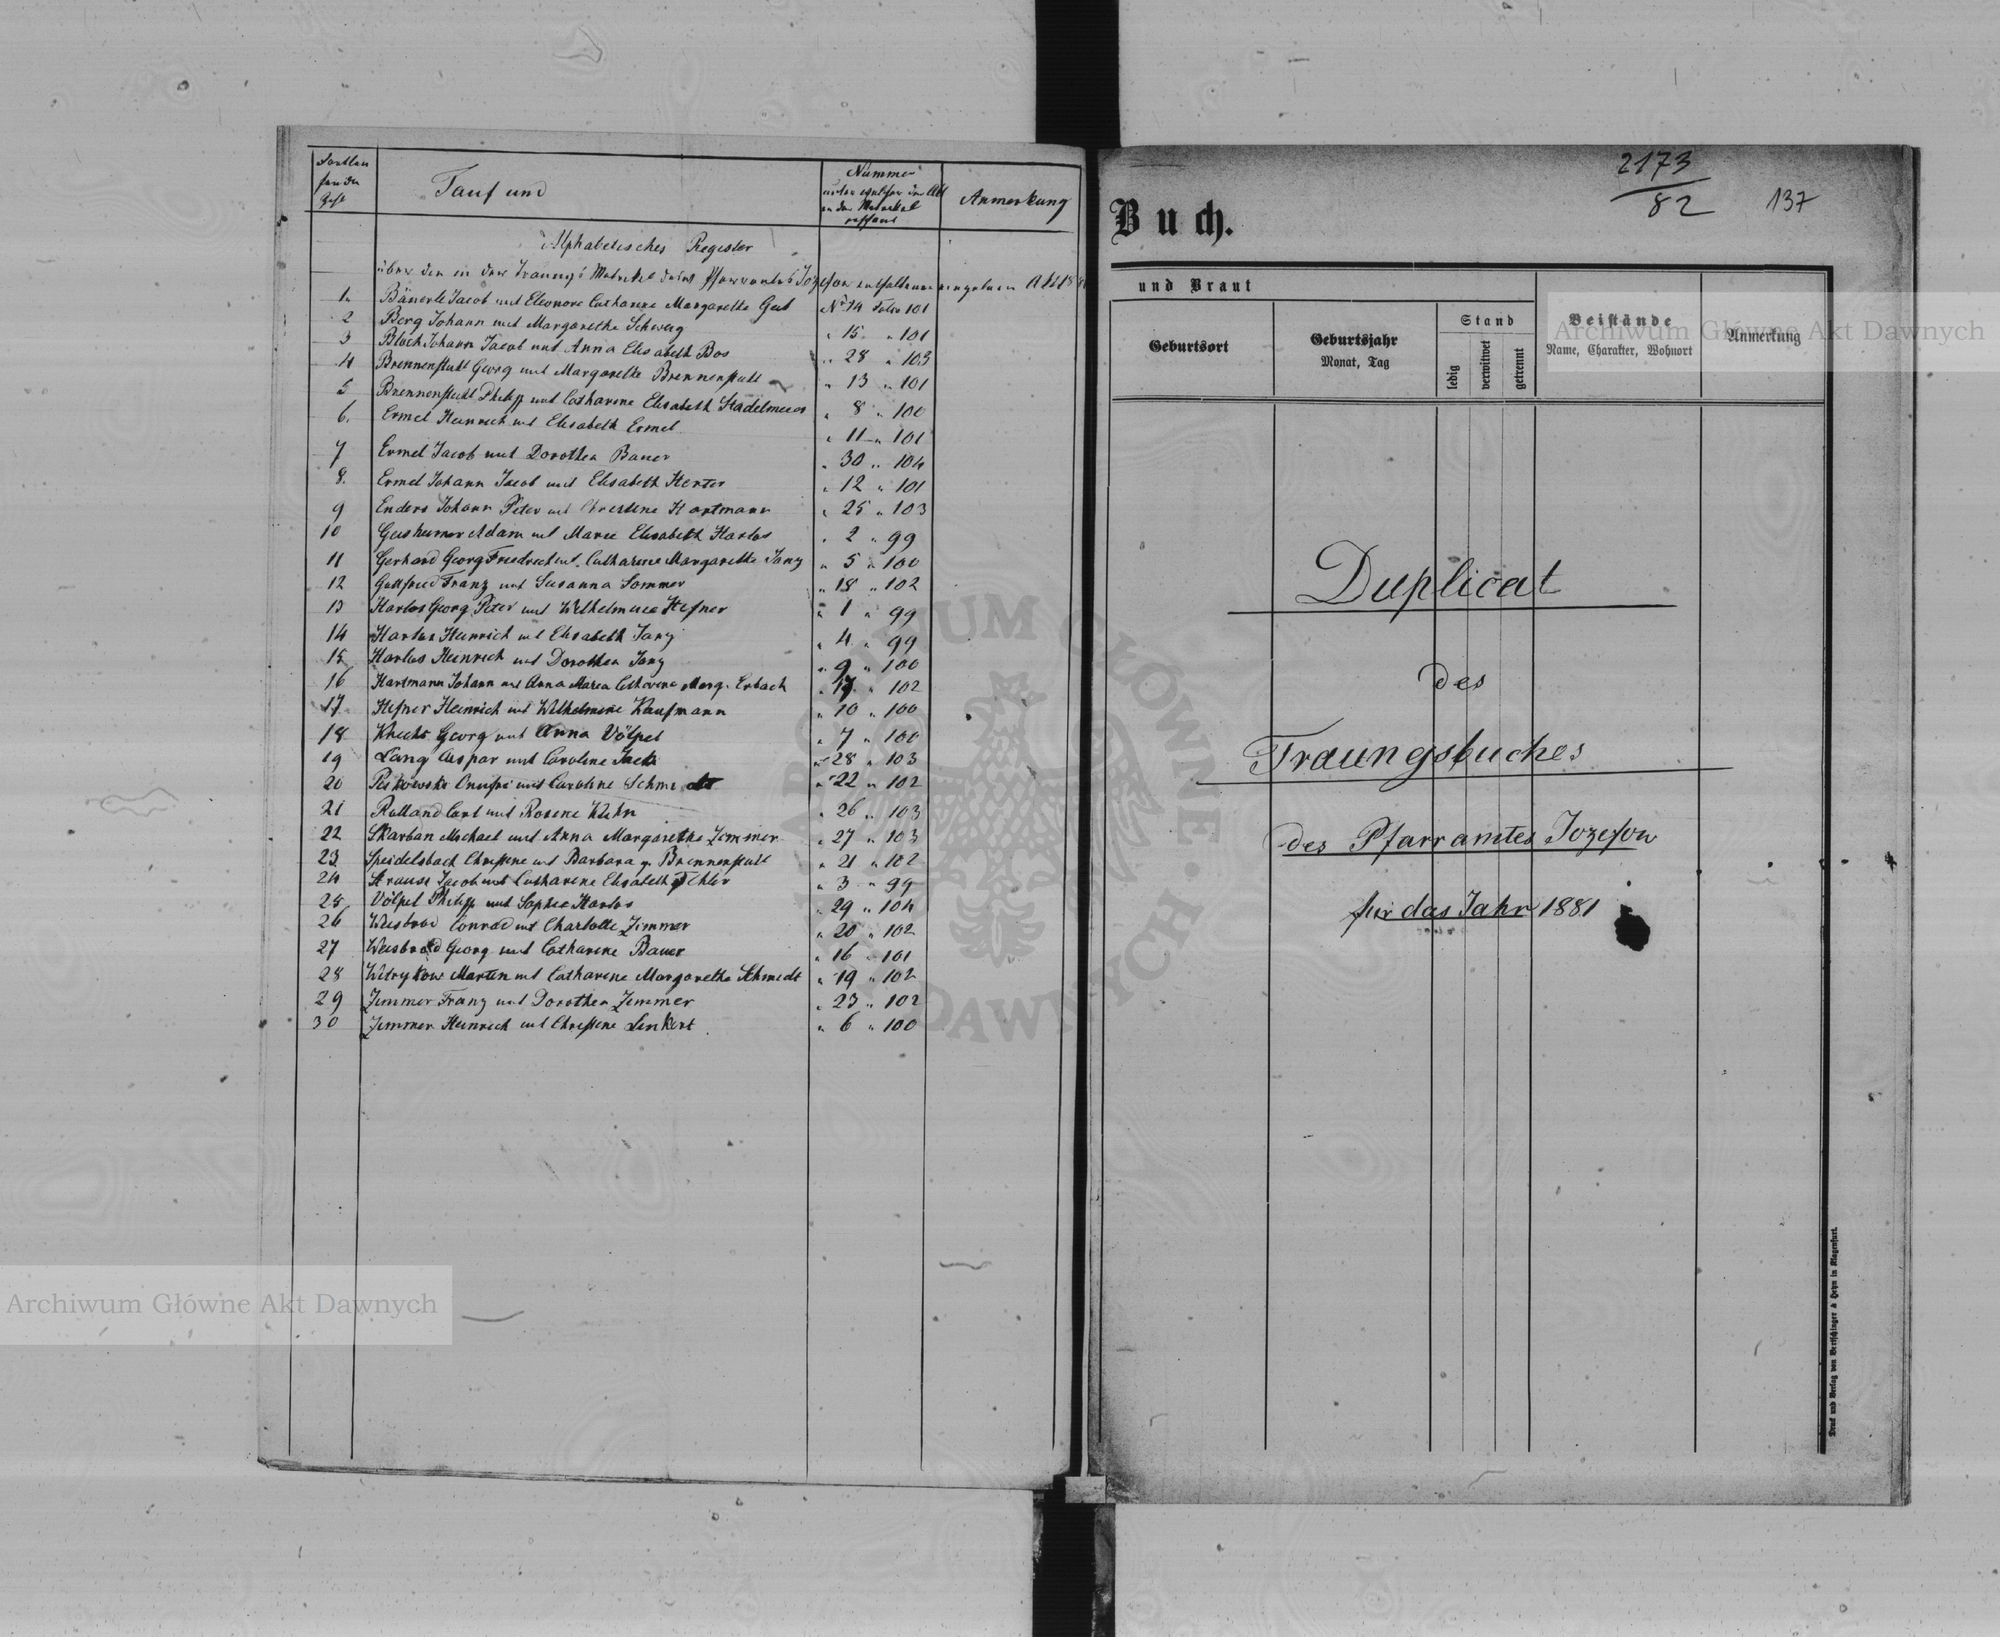 Tauf und
Nummer
Anmerkung
Alphabetisches Register
1. Bäuerle Jacob mit Eleonore Catharine Margarethe Geib No 14 Folio 101
2 Berg Johann mit Margarethe Schweig " 15 " 101
3 Bloch Johann Jacob mit Anna Elisabeth Bos " 28 " 103
4 Brennenstuhl Georg mit Margarethe Brennenstuhl " 13 " 101
5 Brennenstuhl Philipp mit Catharine Elisabeth Stadelmeier " 8 " 100
6. Ermel Heinrich mit Elisabeth Ermel " 11 " 101
7 Ermel Jacob mit Dorothea Bauer " 30 " 104
8. Ermel Johann Jacob mit Elisabeth Herter " 12 " 101
9 Enders Johann Peter mit Christine Hartmann " 25 " 103
10 Geisheimer Adam mit Marie Elisabeth Harlos " 2 " 99
11 Gerhard Georg Friedrich mit Catharine Margarethe Jany " 5 " 100
12 Gottfried Franz mit Susanna Sommer " 18 " 102
13 Harlos Georg Peter mit Wilhelmine Hefner " 1 " 99
14 Harlos Heinrich mit Elisabeth Jany " 4 " 99
15 Harlos Heinrich mit Dorothea Jany " 9 " 100
16 Hartmann Johann mit Anna Maria Catharine Marg. Erbach " 17 " 102
17 Hefner Heinrich mit Wilhelmine Kaufmann " 10 " 100
18 Knecht Georg mit Anna Völpel " 7 " 100
19 Lang Caspar mit Caroline Jack " 28 " 103
20 mit Caroline Schmidt " 22 " 102
21 Rolland Carl mit Rosine Kuhn " 26 " 103
22 Skarban Michael mit Anna Margarethe Zimmer " 27 " 103
23 Speidelsbach Christine mit Barbara g. Brennenstuhl " 21 " 102
24 Strauss Jacob mit Catharine Elisabeth " 3 " 99
25 Völpel Philipp mit Sophie Harlos " 29 " 104
26 Weisbrod Conrad mit Charlotte Zimmer " 20 " 102
27 Weisbrod Georg mit Catharine Bauer " 16 " 101
28 Witrykow Martin mit Catharine Margarethe Schmidt " 19 " 102
29 Zimmer Franz mit Dorothea Zimmer " 23 " 102
30 Zimmer Heinrich mit Christine Linkert " 6 " 100
2173
82
137
Buch.
und Braut
Geburtsort
Geburtsjahr
Monat, Tag
Stand
ledig
verwitwet
getrennt
Beistände
Name, Charakter, Wohnort
Anmerkung
Duplicat
des
Trauungsbuches
des Pfarramtes Jozefow
für das Jahr 1881
Druck und Verlag von Bertschinger & Heyn in Klagenfurt.
Archiwum Główne Akt Dawnych
Archiwum Główne Akt Dawnych
ARCHIWUM GŁÓWNE AKT DAWNYCH